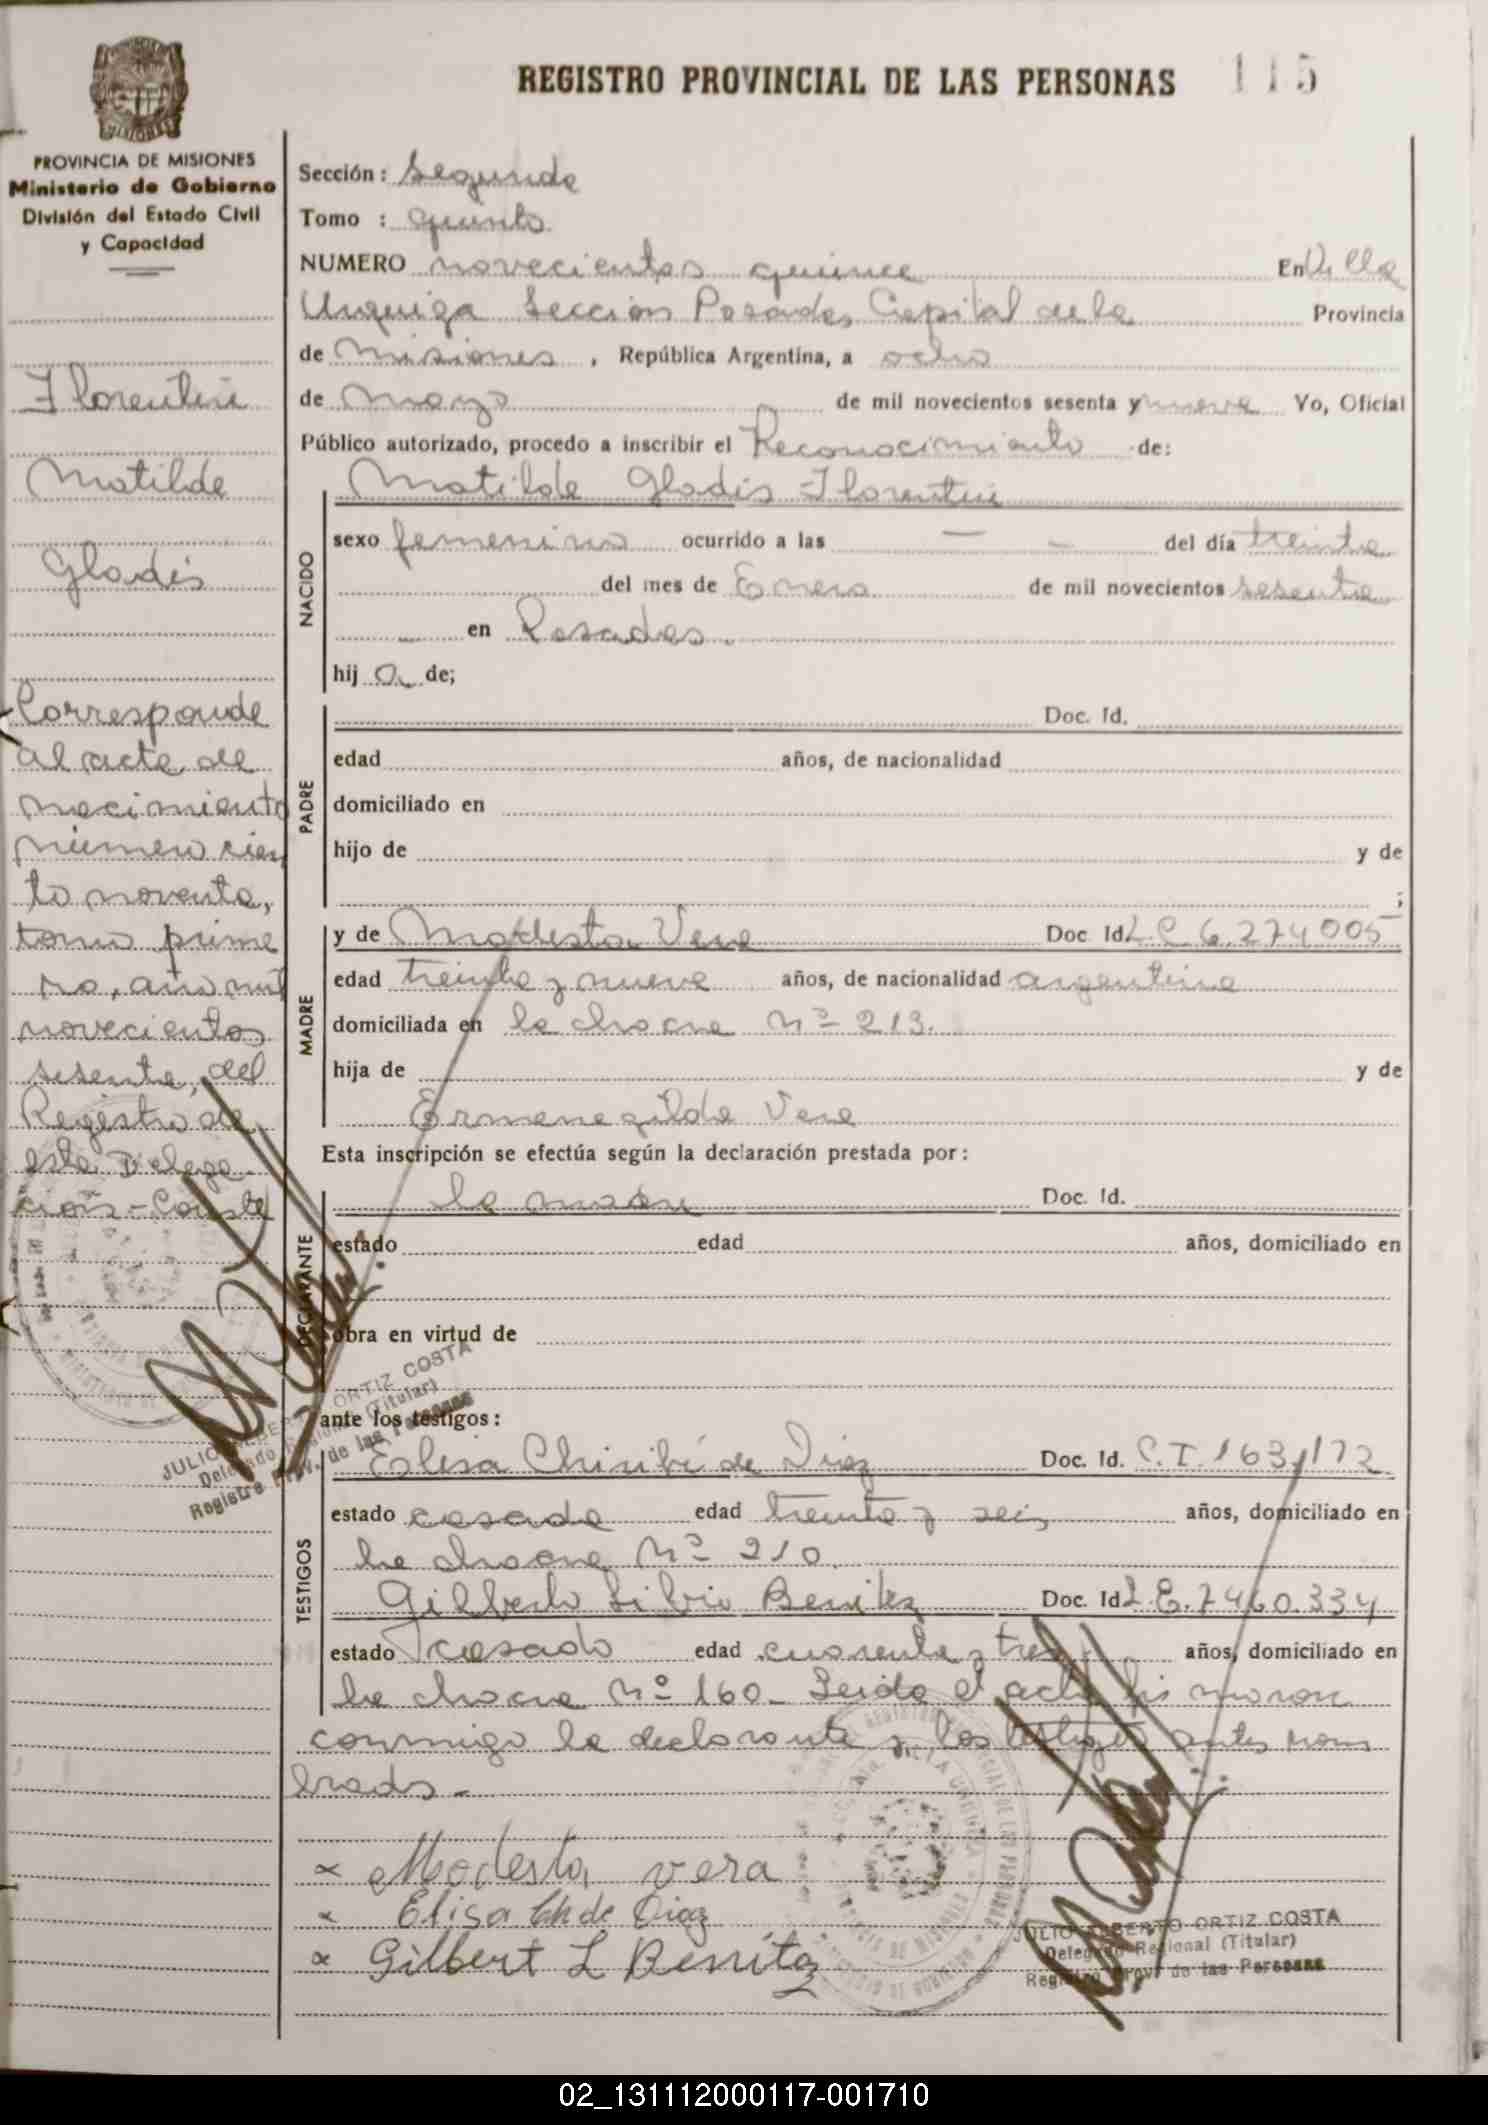 REGISTRO PROVINCIAL DE LAS PERSONAS 115
MISIONES
PROVINCIA DE MISIONES
Ministerio de Gobierno
División del Estado Civil
y Capacidad
Florentin
Matilde
Gladis
Corresponde
al acta de
nacimiento
número cien
to noventa,
tomo prime
ro, año mil
novecientos
sesenta, del
Registro de
esta Delega-
ción - Conste
JULIO ALBERTO ORTIZ COSTA
Delegado Regional (Titular)
Registro Prov. de las Personas
Sección: Segunda
Tomo : quinto
NUMERO novecientos quince En Villa
Urquiza Sección Posadas Capital de la Provincia
de Misiones, República Argentina, a ocho
de Marzo de mil novecientos sesenta y nueve Yo, Oficial
Público autorizado, procedo a inscribir el Reconocimiento de:
Matilde Gladis Florentin
NACIDO
sexo femenino ocurrido a las — — del día treinta
del mes de Enero de mil novecientos sesenta
— en Posadas.
hij a de;
PADRE
Doc. Id.
edad años, de nacionalidad
domiciliado en
hijo de y de
;
MADRE
y de Modesta Vera Doc Id L.C. 6.274.005
edad treinta y nueve años, de nacionalidad argentina
domiciliada en la chacra Nº 213.
hija de y de
Ermenegilda Vera
Esta inscripción se efectúa según la declaración prestada por:
DECLARANTE
la madre Doc. Id.
estado edad años, domiciliado en
obra en virtud de
ante los testigos:
TESTIGOS
Elisa Chiribí de Diaz Doc. Id. C.I. 163,172
estado casada edad treinta y seis años, domiciliado en
la chacra Nº 210.
Gilberto Librio Benitez Doc. Id L.E. 7460.334
estado casado edad cuarenta y tres años, domiciliado en
la chacra Nº 160 - Leida el acta firmaron
conmigo la declarante y los testigos antes nom
brados -
x Modesta vera
x Elisa Ch de Diaz
x Gilbert L Benítez
JULIO ALBERTO ORTIZ COSTA
Delegado Regional (Titular)
Registro Prov de las Personas
02_131112000117-001710